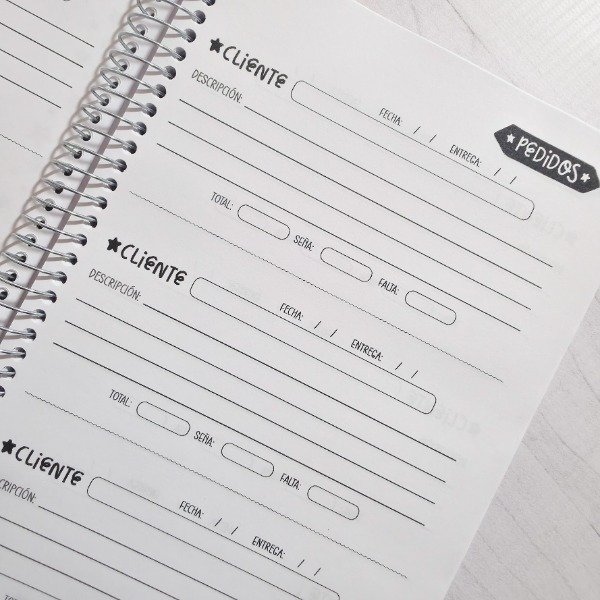 PEDIDOS
CLIENTE
FECHA: / / ENTREGA: / /
DESCRIPCIÓN:
TOTAL: SEÑA: FALTA:
CLIENTE
FECHA: / / ENTREGA: / /
DESCRIPCIÓN:
TOTAL: SEÑA: FALTA:
CLIENTE
FECHA: / / ENTREGA: / /
CRIPCIÓN: